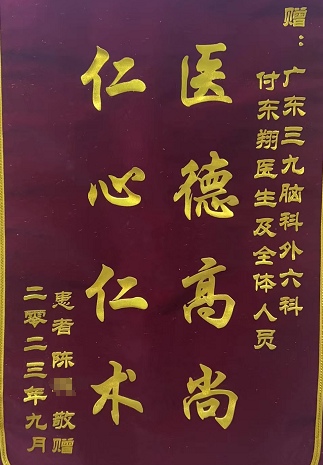 赠：
广东三九脑科外六科
付东翔医生及全体人员
医德高尚
仁心仁术
患者陈 敬赠
二零二三年九月